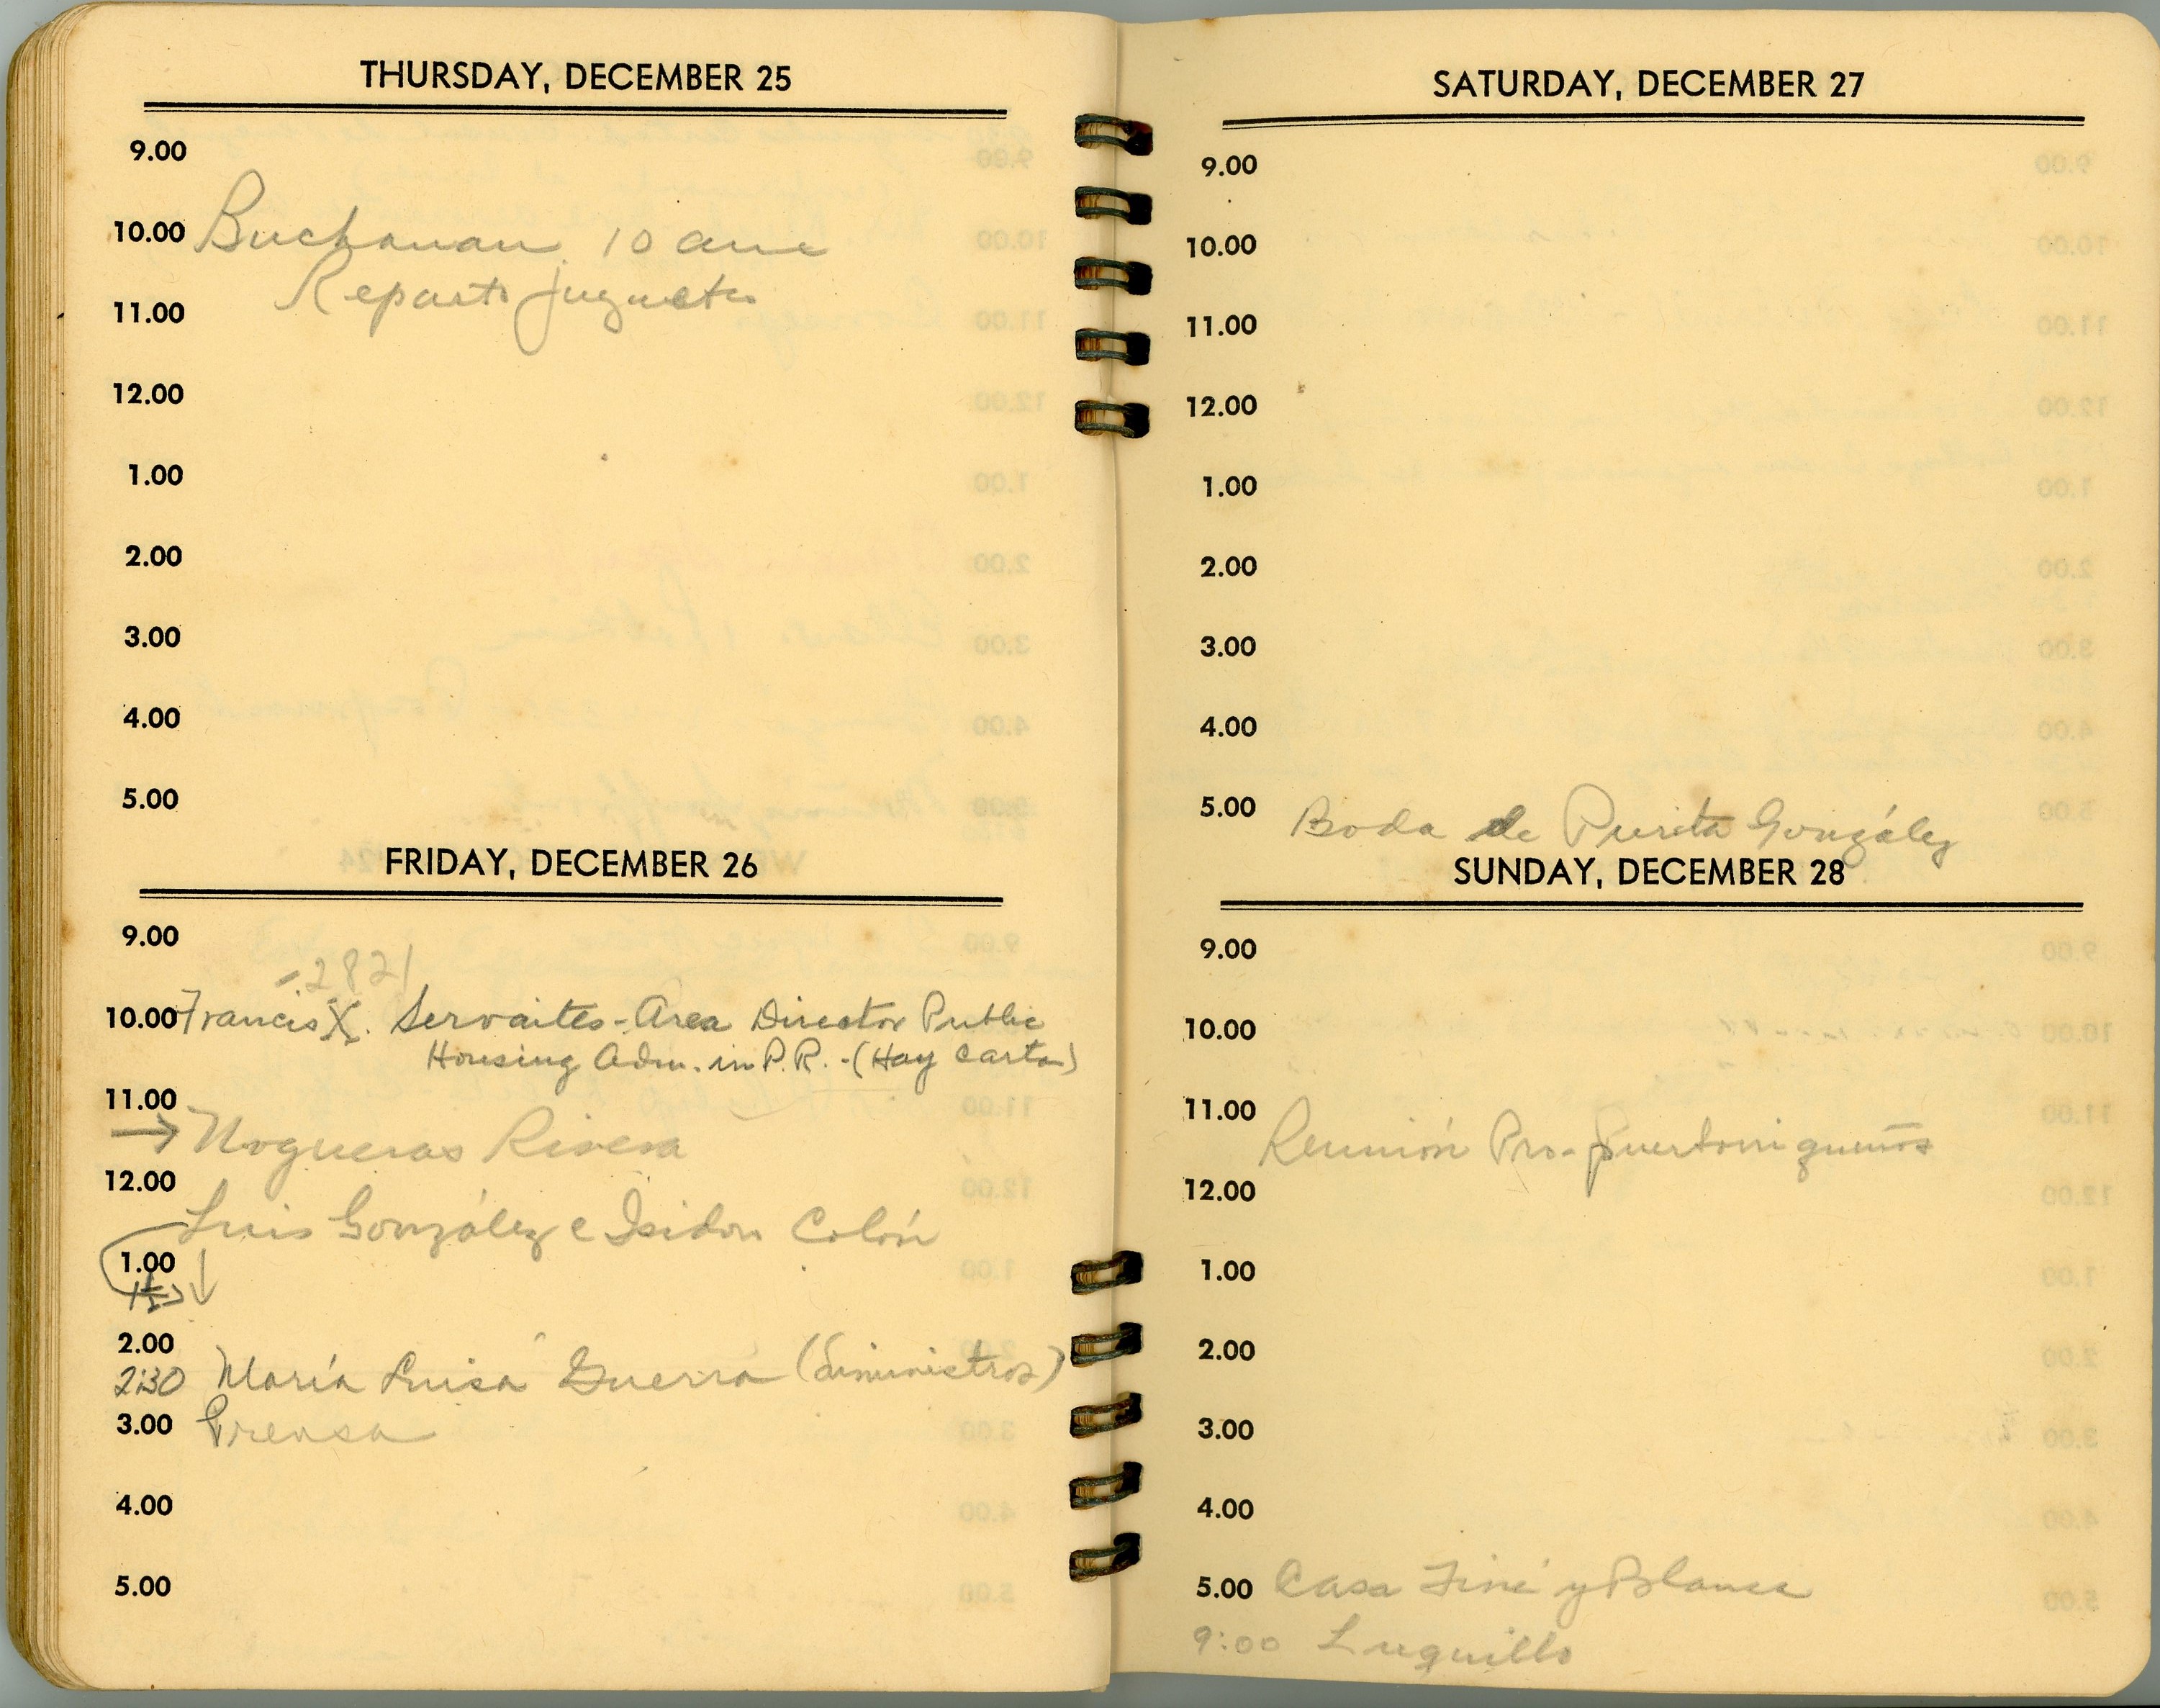 THURSDAY, DECEMBER 25
9.00
10.00 Buchanan 10 am
Reparto juguetes
11.00
12.00
1.00
2.00
3.00
4.00
5.00
FRIDAY, DECEMBER 26
9.00
2821
10.00 Francis X. Servaites - Area Director Public
Housing Adm. in P.R. - (Hay carta)
11.00
→ Nogueras Rivera
12.00
Luis González e Isidro Colón
1.00
2.00
2:30 María Luisa Guerra (Suministros)
3.00 Prensa
4.00
5.00
SATURDAY, DECEMBER 27
9.00
10.00
11.00
12.00
1.00
2.00
3.00
4.00
5.00 Boda de Purita González
SUNDAY, DECEMBER 28
9.00
10.00
11.00
Reunión Pro-puertorriqueños
12.00
1.00
2.00
3.00
4.00
5.00 Casa Finí y Blanca
9:00 Luquillo